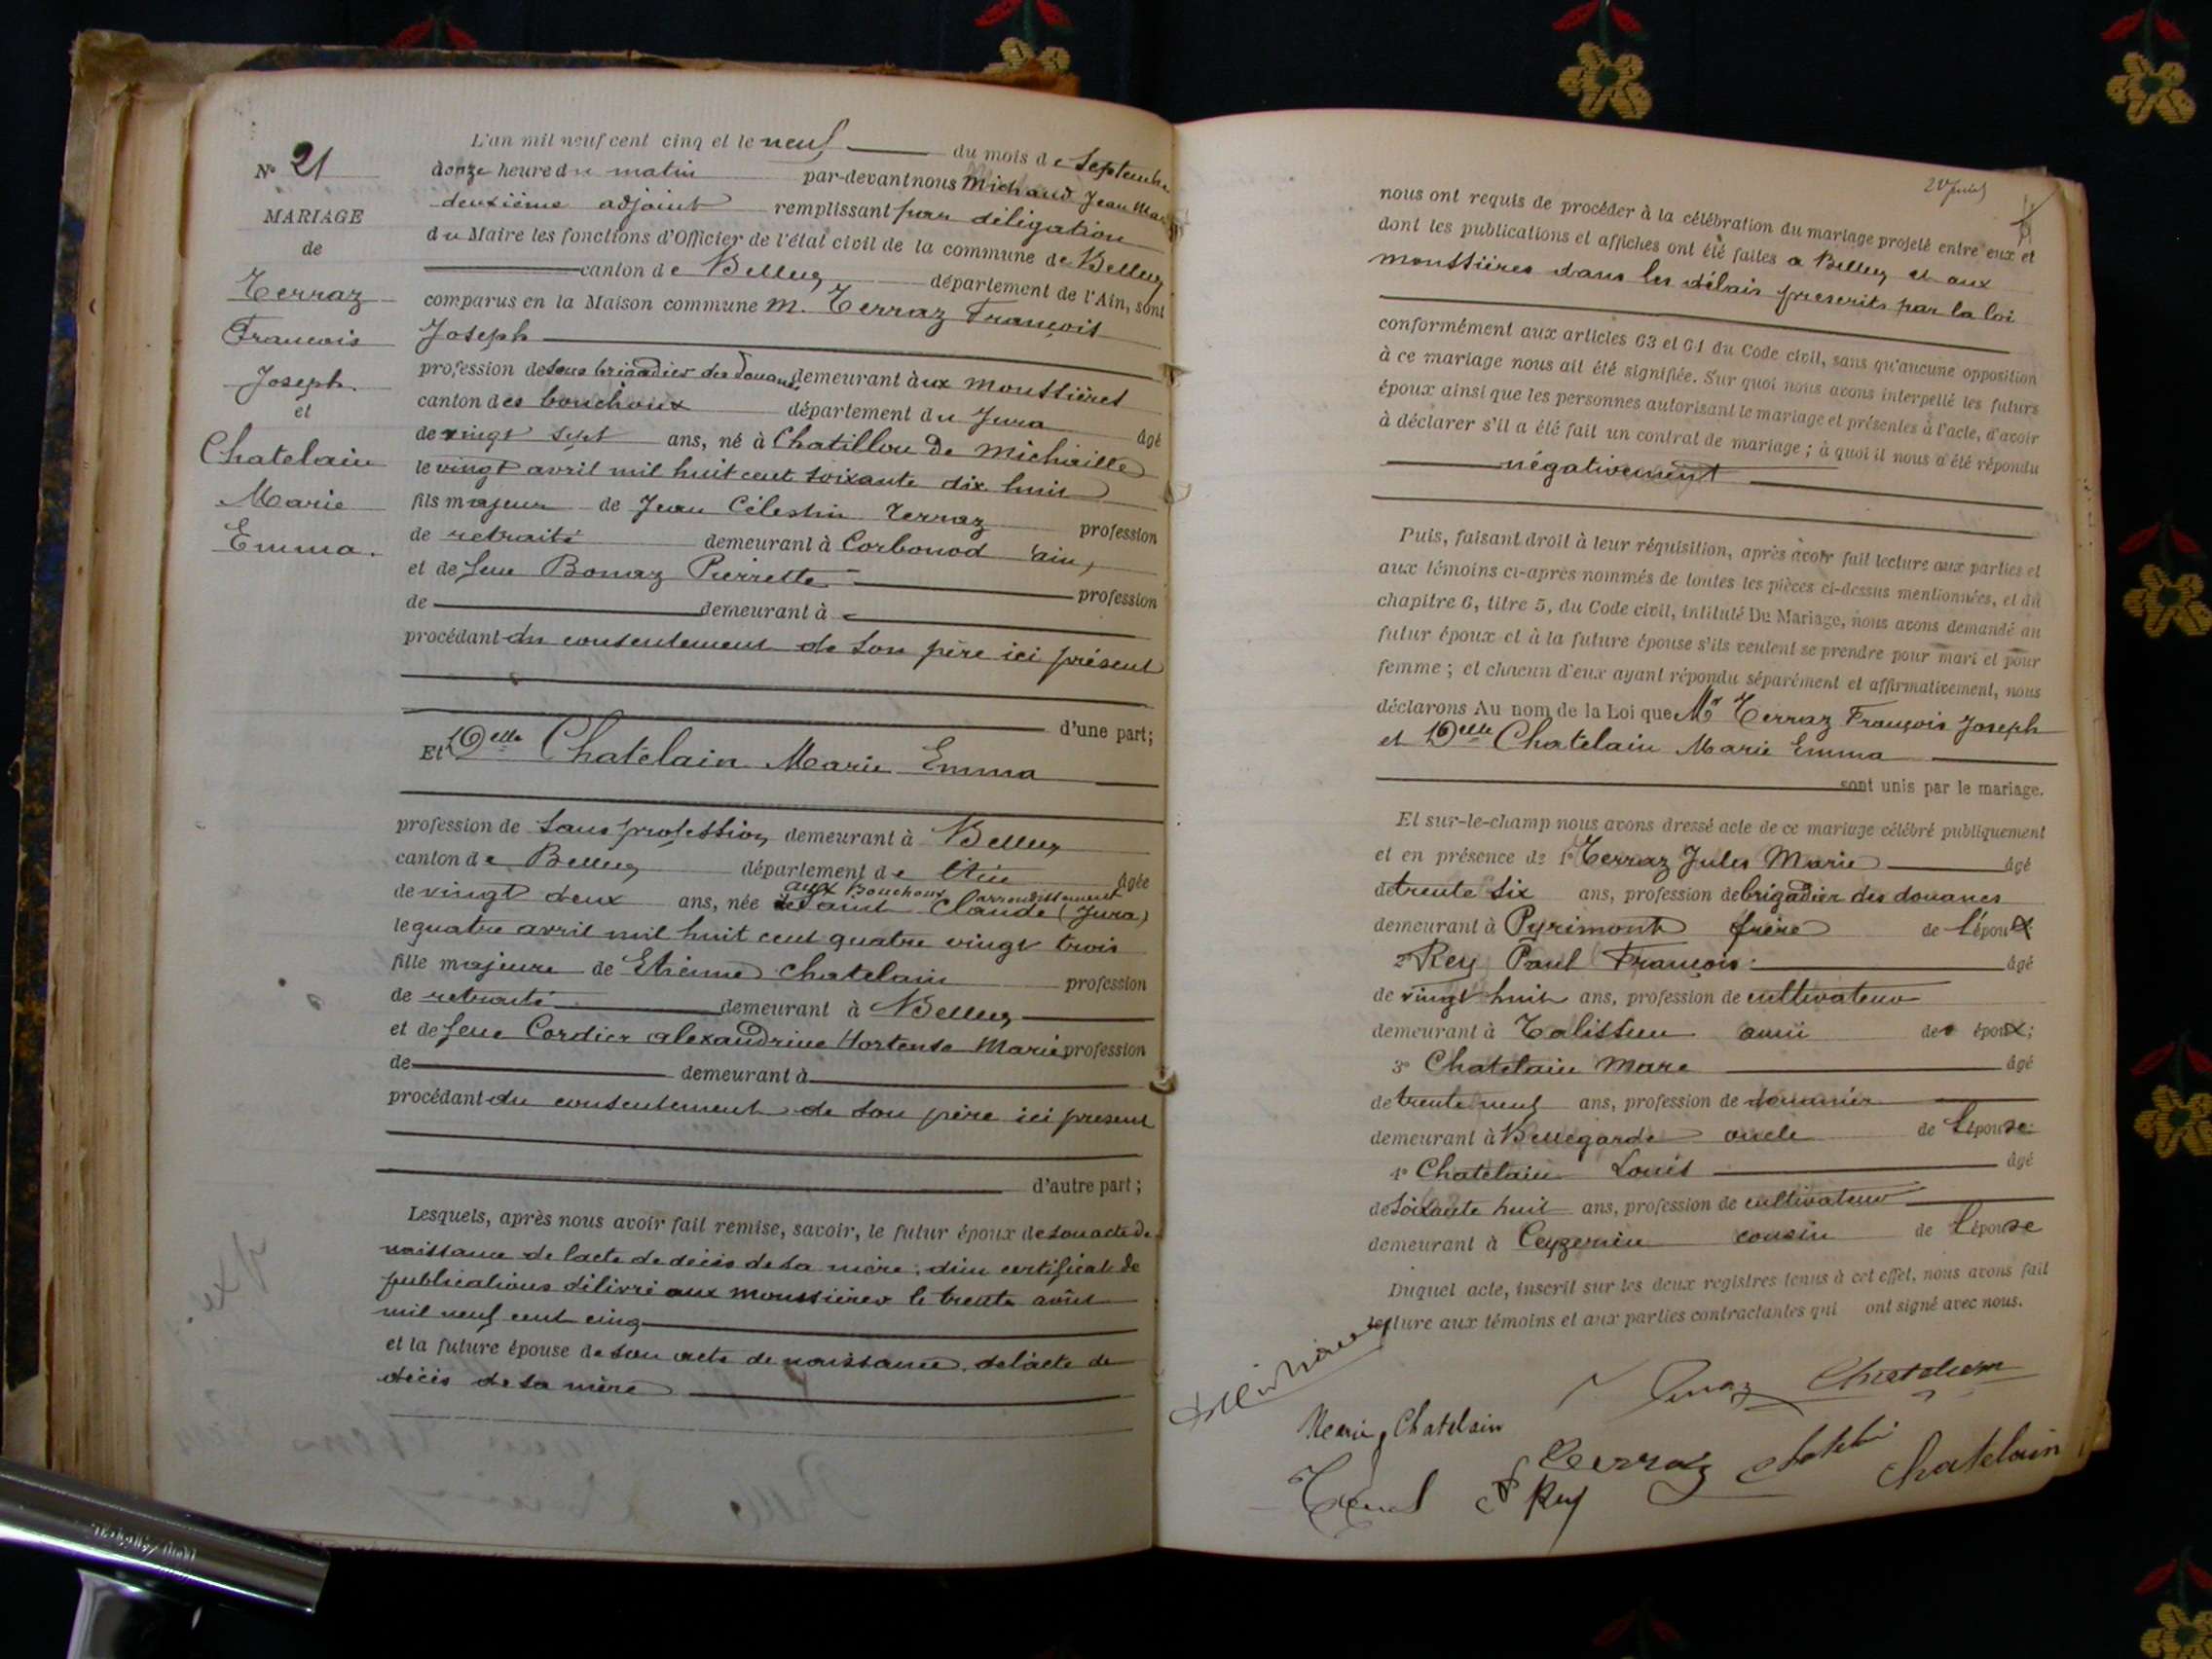 N° 21
MARIAGE
de
Terraz
François
Joseph.
et
Chatelain
Marie
Emma.
L'an mil neuf cent cinq et le neuf du mois de Septembre
à onze heure du matin par-devant nous Michaud Jean Mar
deuxième adjoint remplissant par délégation
du Maire les fonctions d'Officier de l'état civil de la commune de Belley
canton de Belley département de l'Ain, sont
comparus en la Maison commune M. Terraz François
Joseph
profession de sous brigadier des douanes demeurant à ux Moussières
canton des bouchoux département du Jura âgé
de vingt sept ans, né à Chatillon de Michaille
le vingt avril mil huit cent soixante dix huit
fils majeur de Jean Célestin Terraz profession
de retraité demeurant à Corbonod ain,
et de feue Bonaz Pierrette profession
de demeurant à
procédant du consentement de son père ici présent
d'une part;
Et Delle Chatelain Marie Emma
profession de sans profession demeurant à Belley
canton de Belley département de l'Ain âgée
aux Bouchoux arrondissement
de vingt deux ans, née de Saint Claude (Jura)
le quatre avril mil huit cent quatre vingt trois
fille majeure de Etienne Chatelain profession
de retraité demeurant à Belley
et de feue Cordier alexandrine Hortense Marie profession
de demeurant à
procédant du consentement de son père ici présent
d'autre part;
Lesquels, après nous avoir fait remise, savoir, le futur époux de son acte de
naissance de l'acte de décès de sa mère, d'un certificat de
publications délivré aux moussières le trente août
mil neuf cent cinq
et la future épouse de son acte de naissance, de l'acte de
décès de sa mère
nous ont requis de procéder à la célébration du mariage projeté entre eux et
dont les publications et affiches ont été faites a Belley et aux
moussières dans les délais prescrits par la loi
conformément aux articles 63 et 64 du Code civil, sans qu'aucune opposition
à ce mariage nous ait été signifiée. Sur quoi nous avons interpellé les futurs
époux ainsi que les personnes autorisant le mariage et présentes à l'acte, d'avoir
à déclarer s'il a été fait un contrat de mariage; à quoi il nous a été répondu
négativement
Puis, faisant droit à leur réquisition, après avoir fait lecture aux parties et
aux témoins ci-après nommés de toutes les pièces ci-dessus mentionnées, et du
chapitre 6, titre 5, du Code civil, intitulé Du Mariage, nous avons demandé au
futur époux et à la future épouse s'ils veulent se prendre pour mari et pour
femme; et chacun d'eux ayant répondu séparément et affirmativement, nous
déclarons Au nom de la Loi que Mr Terraz François Joseph
et Delle Chatelain Marie Emma
sont unis par le mariage.
Et sur-le-champ nous avons dressé acte de ce mariage célébré publiquement
et en présence de 1° Terraz Jules Marie âgé
de trente six ans, profession de brigadier des douanes
demeurant à Pyrimont frère de l'époux
2° Rey Paul François âgé
de vingt huit ans, profession de cultivateur
demeurant à Talissieu ami des époux;
3° Chatelain Marc âgé
de trente neuf ans, profession de douanier
demeurant à Bellegarde oncle de l'épouse
4° Chatelain Louis âgé
de soixante huit ans, profession de cultivateur
demeurant à Ceyzerieu cousin de l'épouse
Duquel acte, inscrit sur les deux registres tenus à cet effet, nous avons fait
lecture aux témoins et aux parties contractantes qui ont signé avec nous.
Terraz Chatelain
Marie Chatelain
Terraz Chatelain
Rey